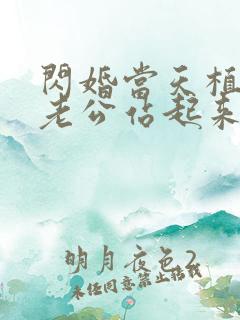 閃婚當天植
老公佔起來
明月夜色2
未任同意禁止佔載